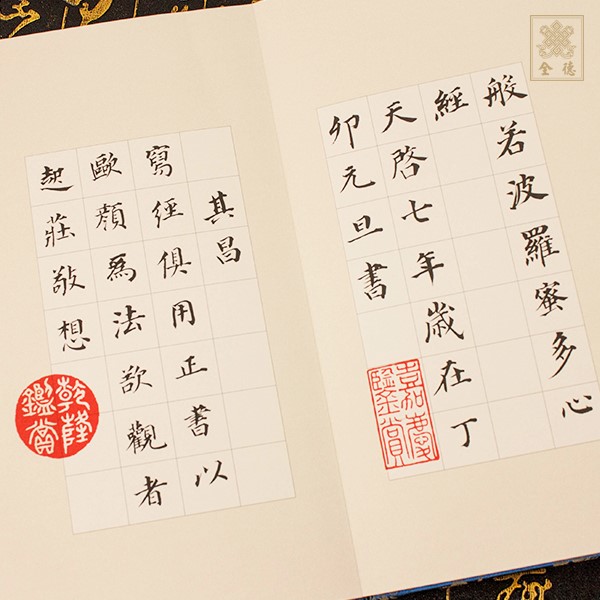 般若波羅蜜多心
經
天啓七年歲在丁
卯元旦書
嘉慶
鑒賞
其昌
寫經俱用正書以
歐顏爲法欲觀者
起莊敬想
乾隆
鑑賞
全德